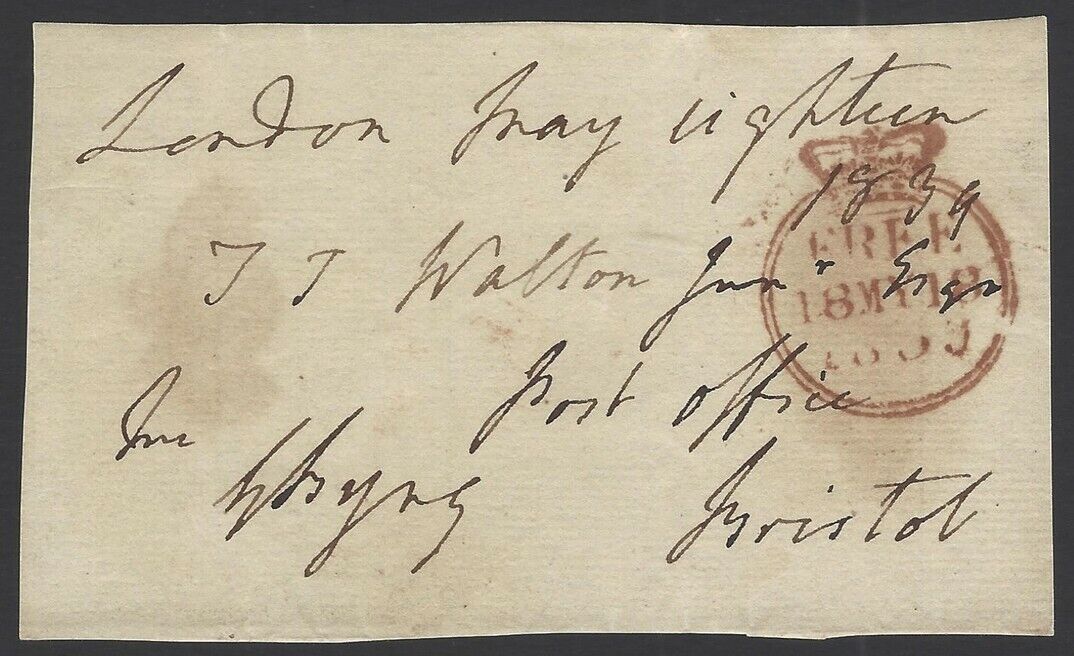 London May eighteen
1839
T T Walton Junr Esqr
Post Office
Bristol
Byng
FREE
18 MY 18
1839